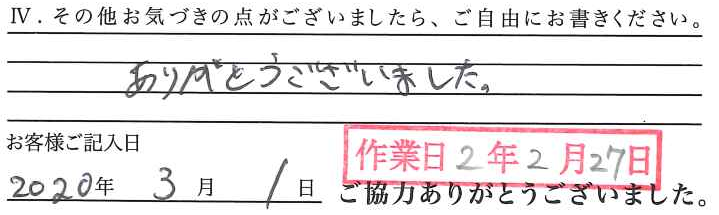 Ⅳ．その他お気づきの点がございましたら、ご自由にお書きください。
ありがとうございました。
お客様ご記入日
作業日2年2月27日
2020年 3月 1日
ご協力ありがとうございました。